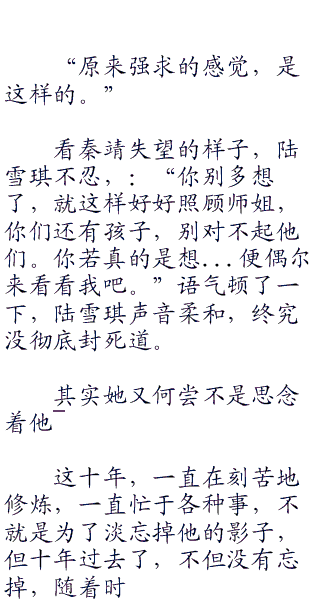 “原来强求的感觉，是
这样的。”
看秦靖失望的样子，陆
雪琪不忍，：“你别多想
了，就这样好好照顾师姐，
你们还有孩子，别对不起他
们。你若真的是想...便偶尔
来看看我吧。”语气顿了一
下，陆雪琪声音柔和，终究
没彻底封死道。
其实她又何尝不是思念
着他‾
这十年，一直在刻苦地
修炼，一直忙于各种事，不
就是为了淡忘掉他的影子，
但十年过去了，不但没有忘
掉，随着时